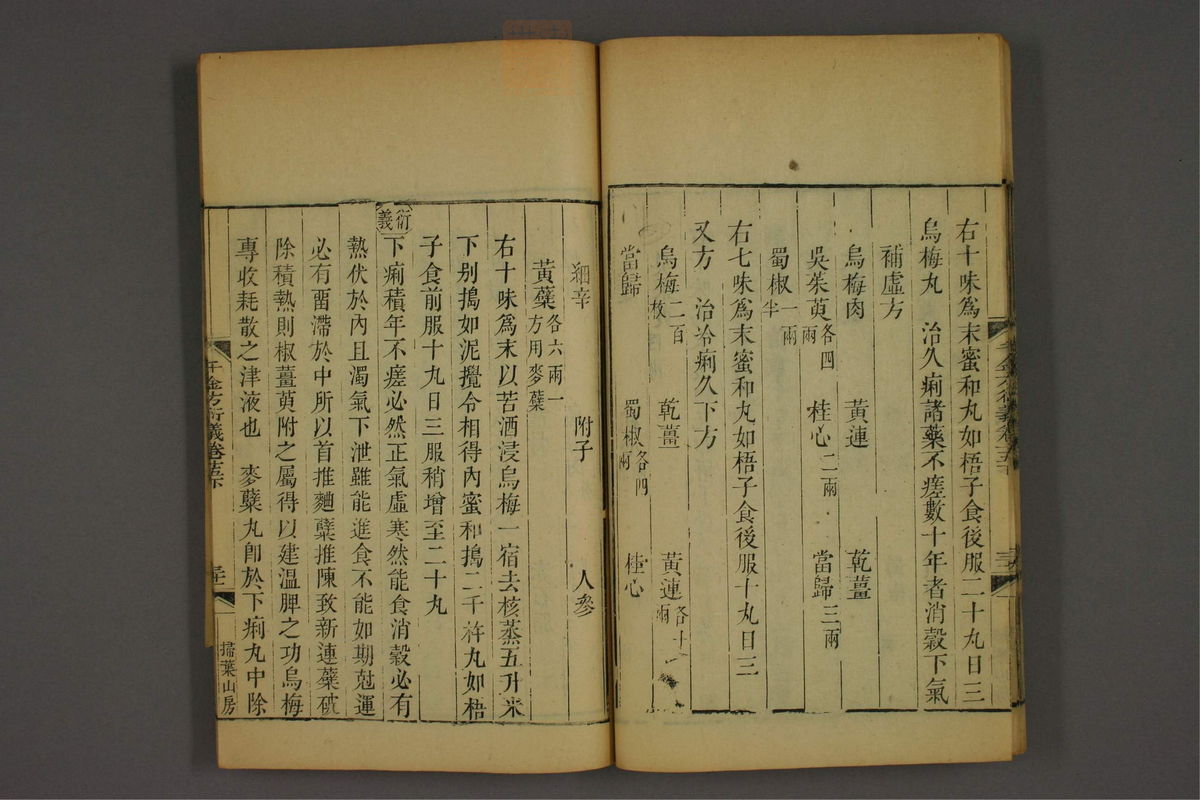 右十味爲末蜜和丸如梧子食後服二十丸日三
烏梅丸　治久痢諸藥不瘥數十年者消穀下氣
補虛方
烏梅肉　黃連　乾薑
吳茱萸各四兩　桂心二兩　當歸三兩
蜀椒一兩半
右七味爲末蜜和丸如梧子食後服十丸日三
又方　治冷痢久下方
烏梅二百枚　乾薑　黃連各十兩
當歸　蜀椒各四兩　桂心
細辛　附子　人參
黃蘗各六兩一方用麥蘗
右十味爲末以苦酒浸烏梅一宿去核蒸五升米
下别搗如泥攪令相得內蜜和搗二千杵丸如梧
子食前服十丸日三服稍增至二十丸
衍義
下痢積年不瘥必然正氣虛寒然能食消穀必有
熱伏於內且濁氣下泄雖能進食不能如期尅運
必有畱滯於中所以首推麯蘗推陳致新連蘗破
除積熱則椒薑萸附之屬得以建溫脾之功烏梅
專收耗散之津液也　麥蘗丸卽於下痢丸中除
千金方衍義卷十五下
掃葉山房